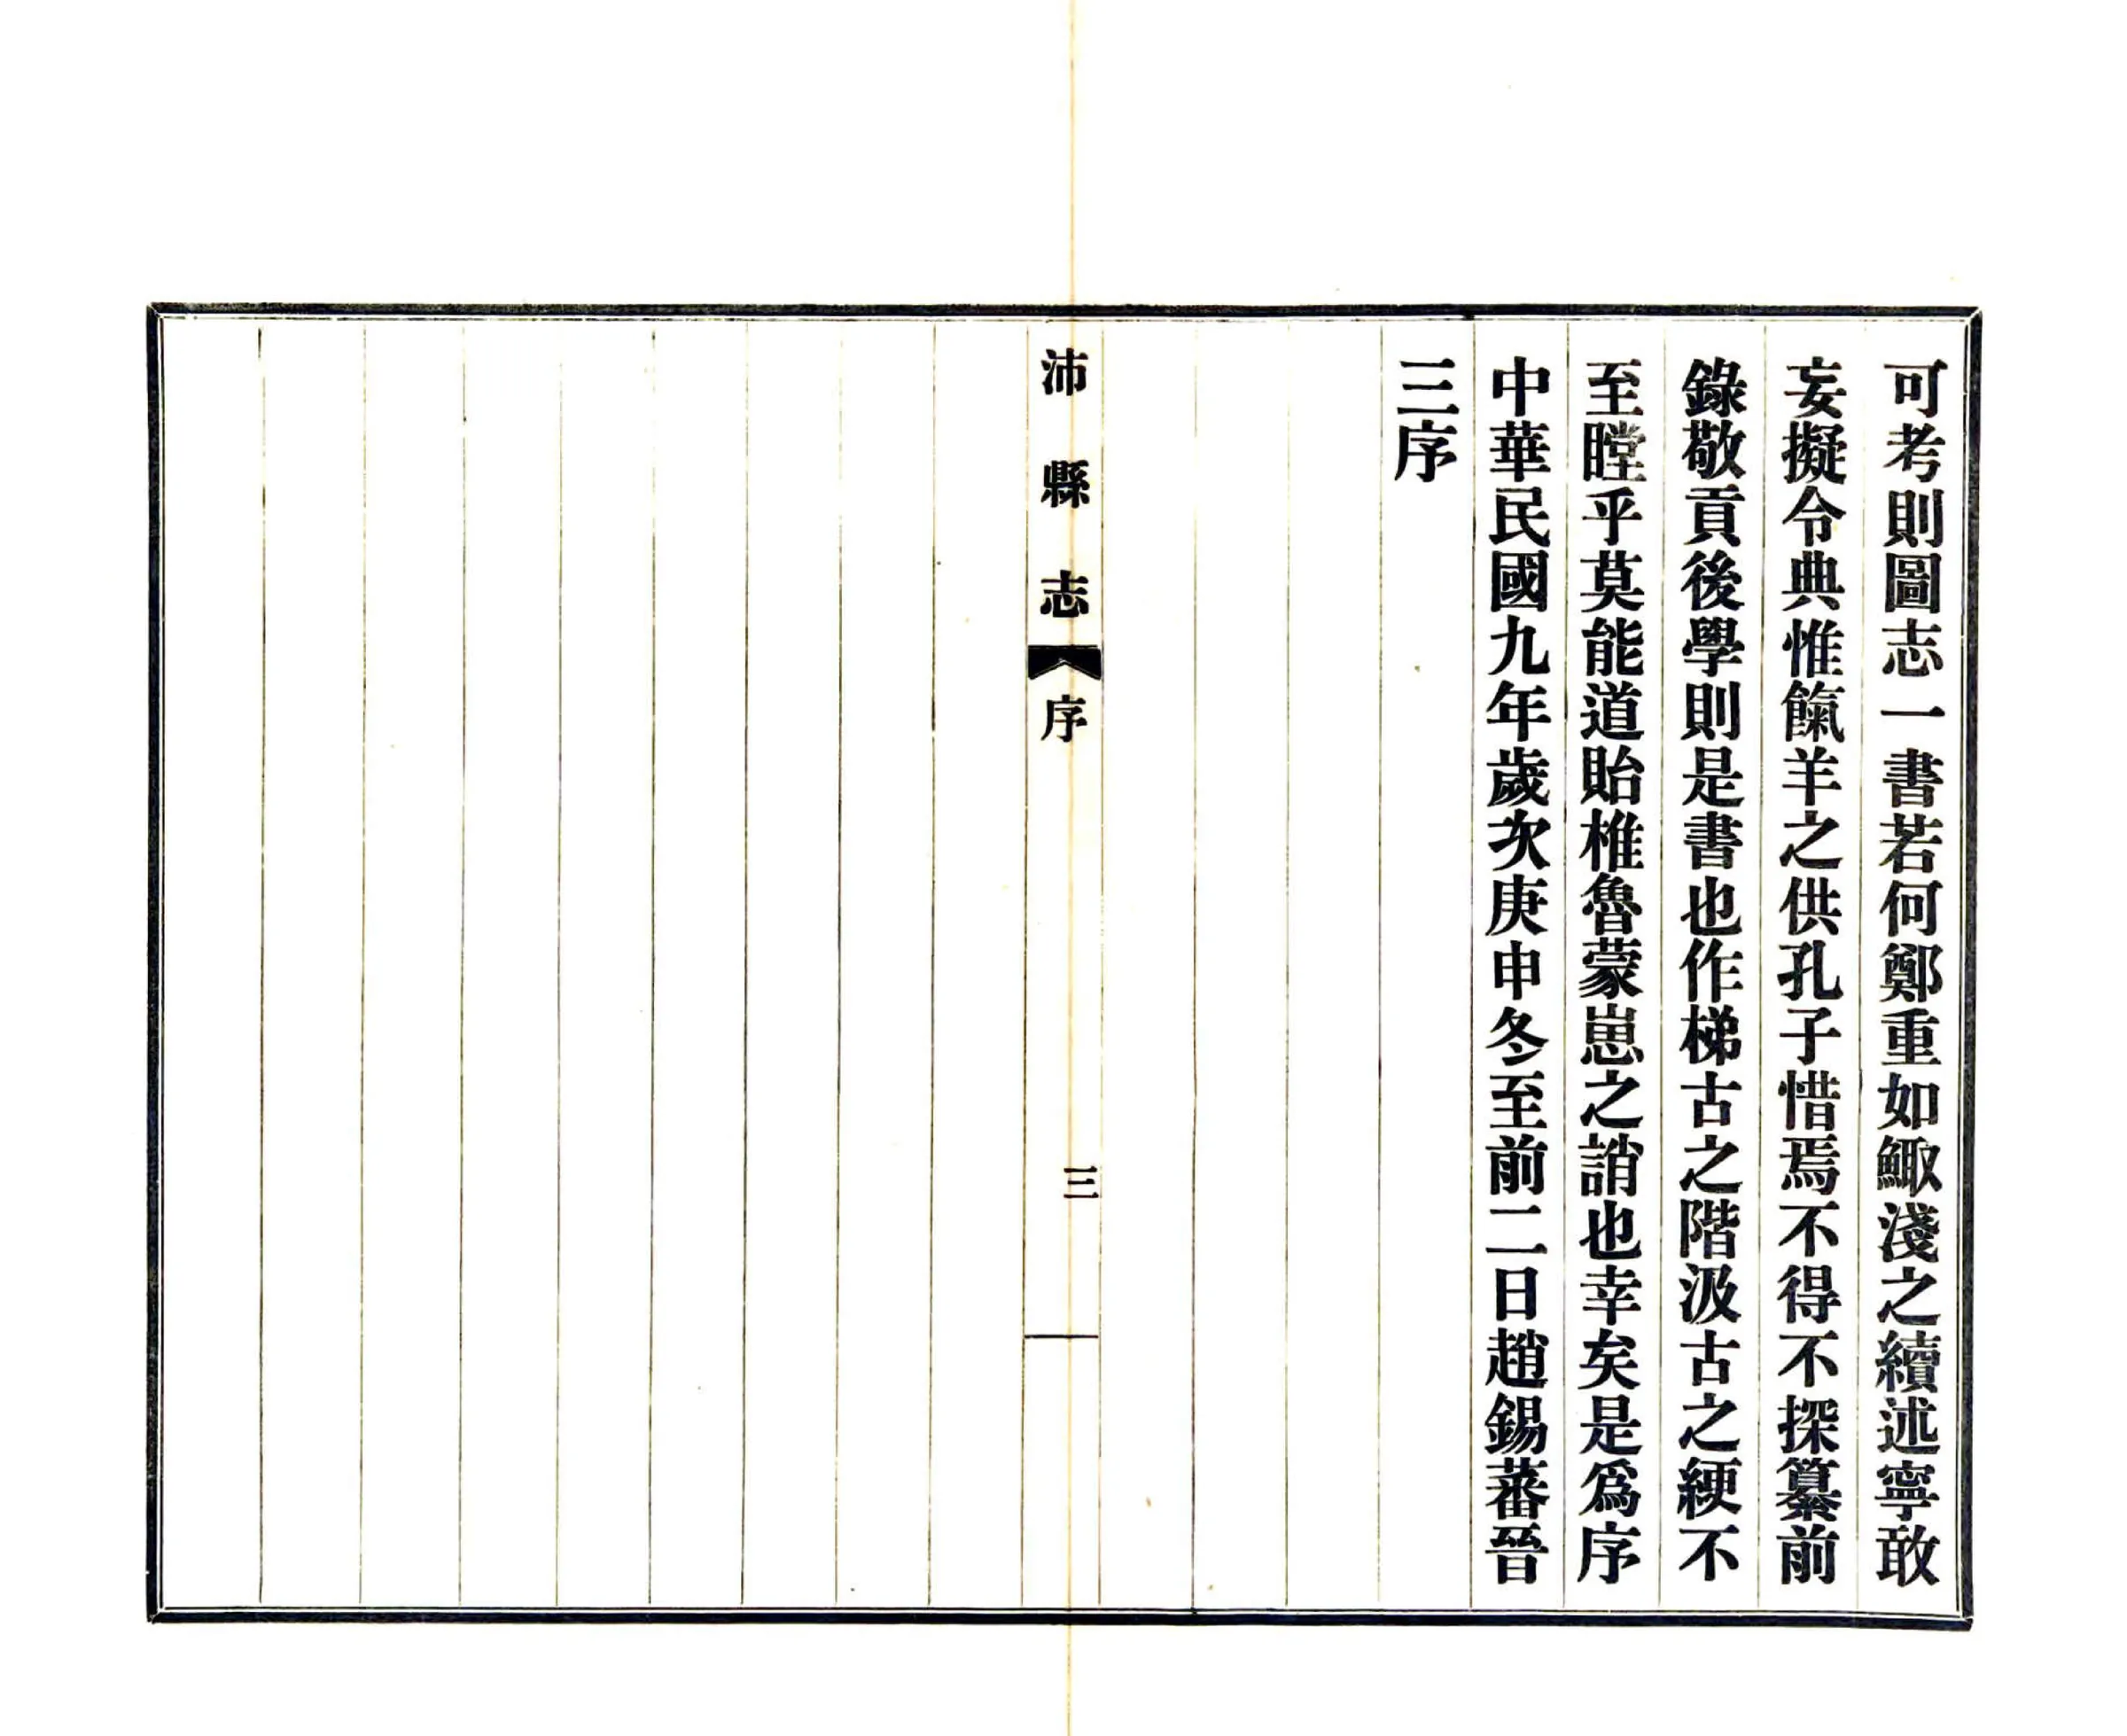 可考則圖志一書若何鄭重如鯫淺之續述寧敢
妄擬令典惟餼羊之供孔子惜焉不得不探纂前
錄敬貢後學則是書也作梯古之階汲古之綆不
至瞠乎莫能道貽椎魯蒙崽之誚也幸矣是爲序
中華民國九年歲次庚申冬至前二日趙錫蕃晉
三序
沛縣志
序
三